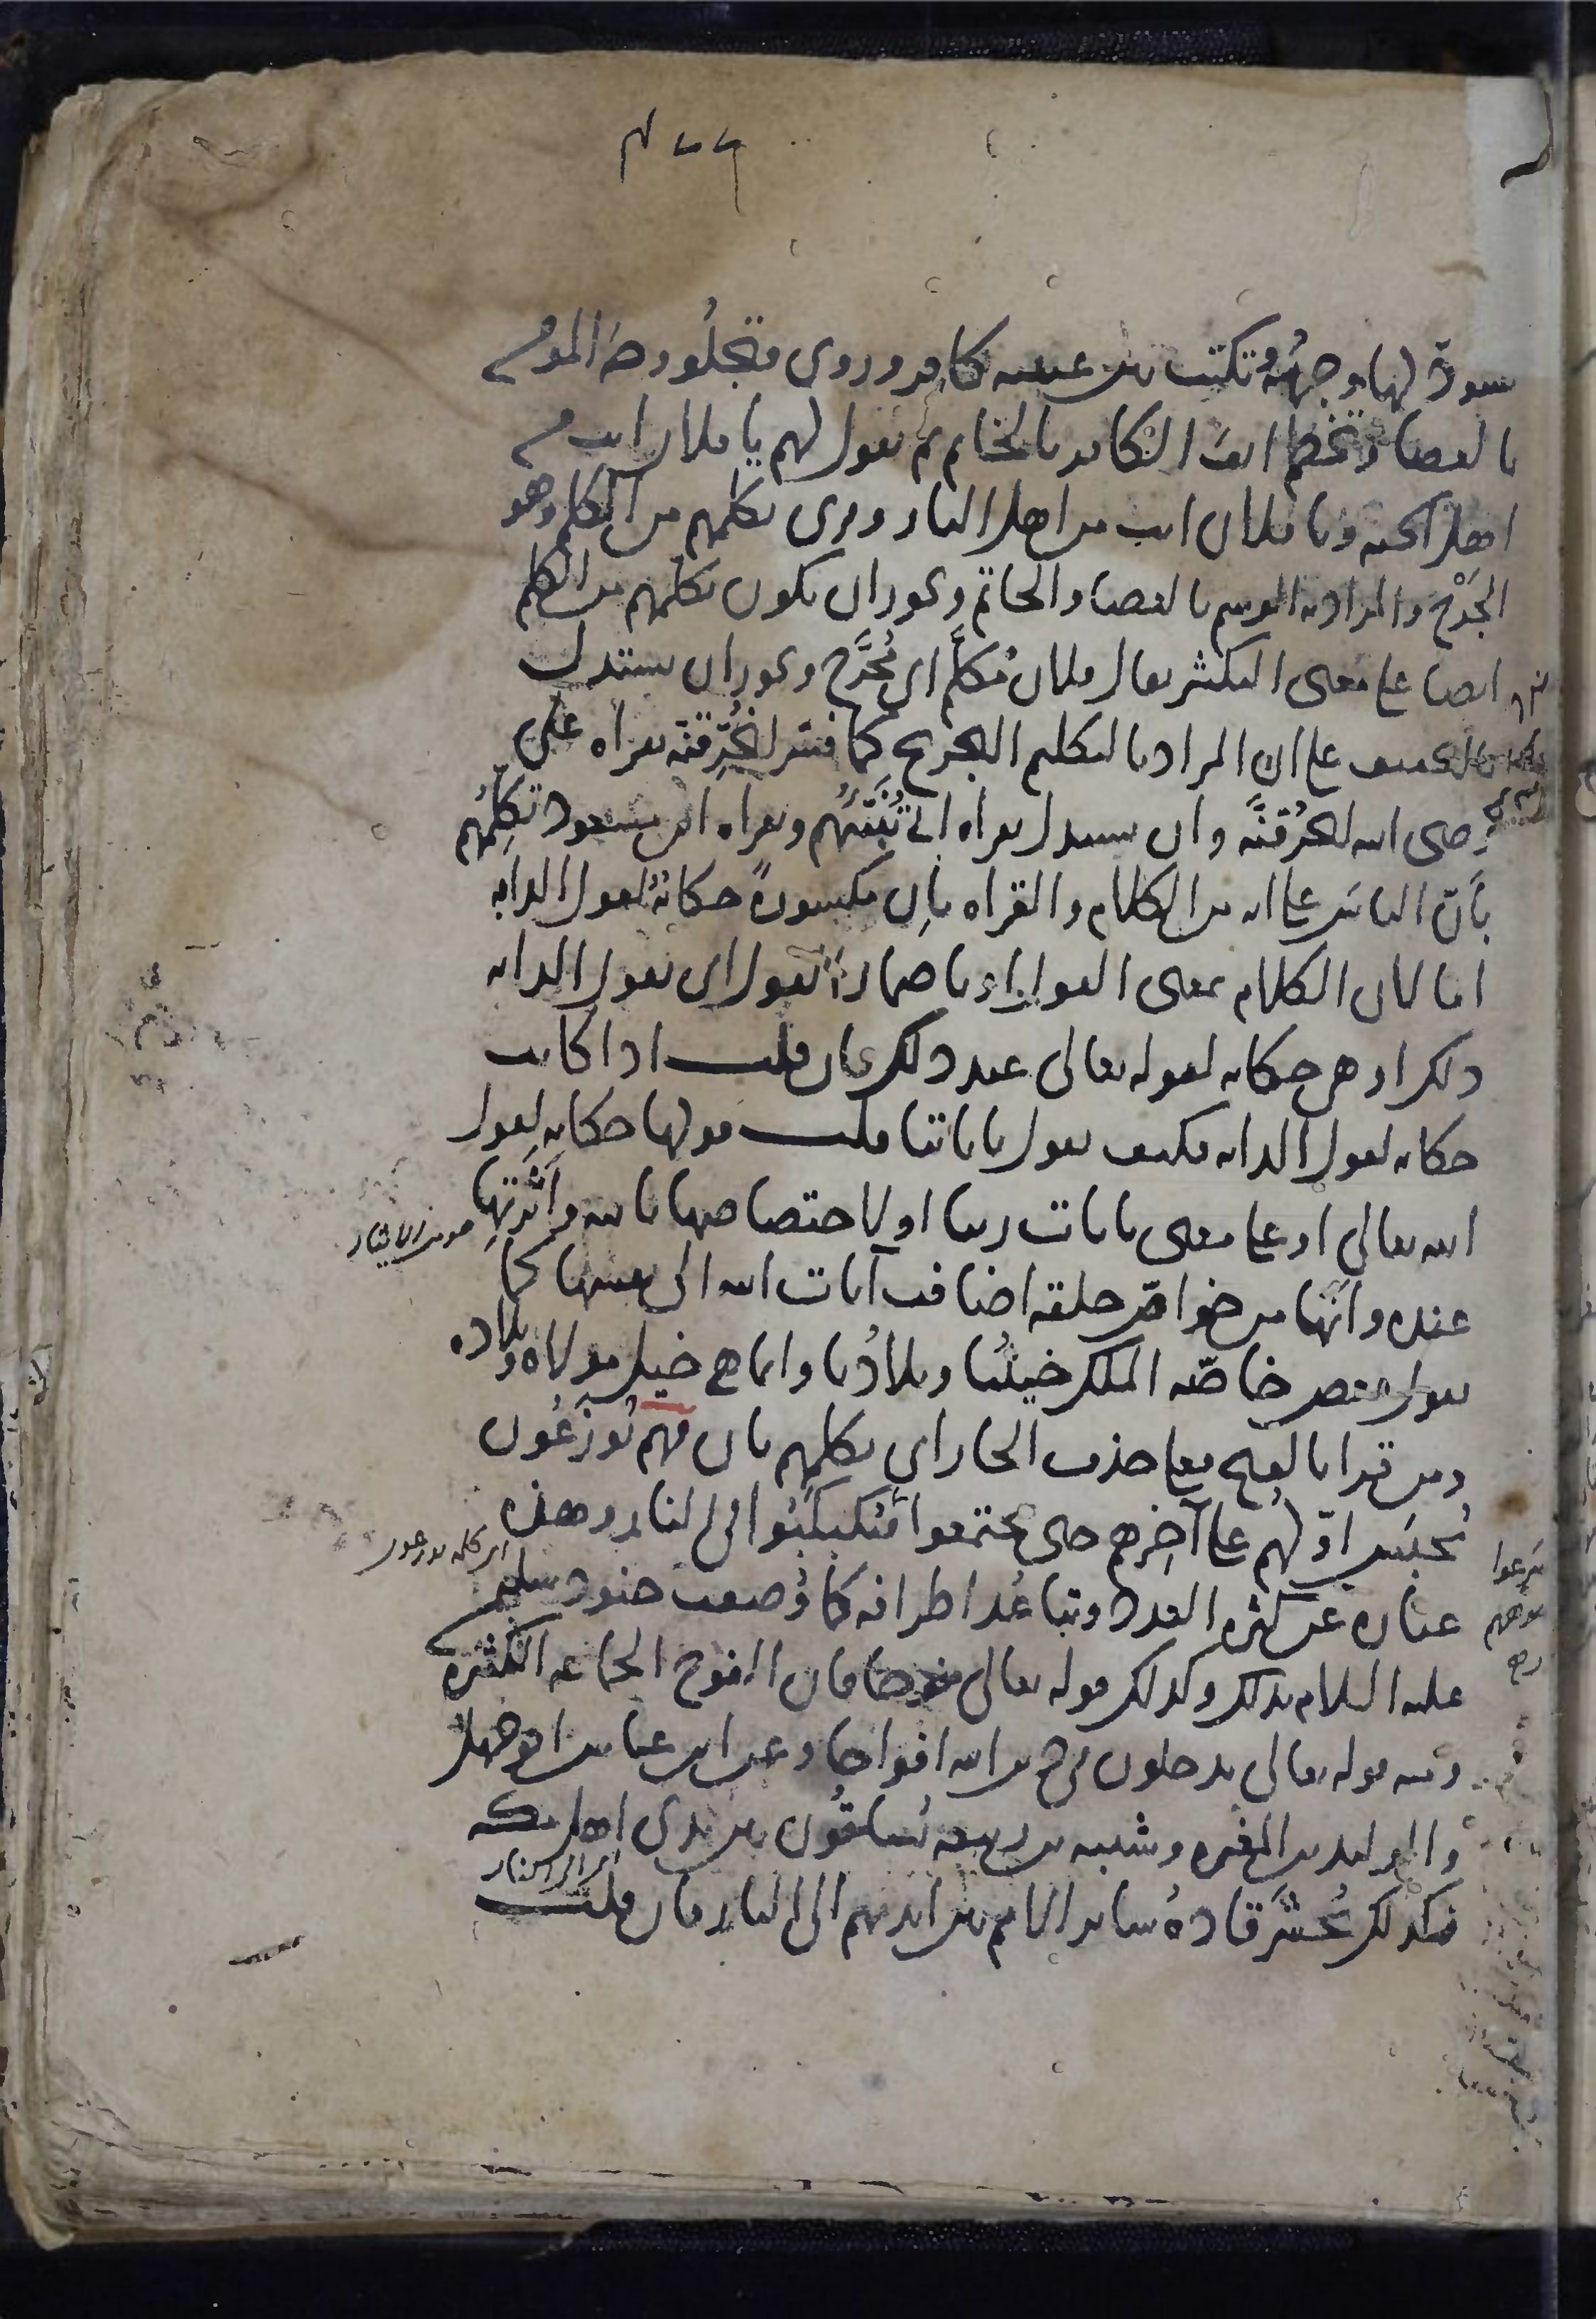 يسودّ لها وجهُهُ وتكتب بين عينيه كافر وروى فتجلُو وجه المومن
بالعصا وتخطم انف الكافر بالخاتم ثم تقول لهم يا فلان انت من
اهل الجنه ويا فلان انت من اهل النار وقرى تكلمهم من الكلم وهو
الجَرْح والمراد به الوسم بالعصا والخاتم ويجوز ان يكون تكلمهم من الكلم
ايضا على معنى التكثير يقال فلان مُكلَّم اى مُجَرَّح ويجوز ان يستدل
بالتخفيف على ان المراد بالتكليم التجريح كما فسّر لنُحَرِّقنّه بقراه على
رضى الله لنَحرُقنَّه وان يستدل بقراه ابىّ تُنَبِّئُهم وبقراه ابن مسعود تُكَلِّمُهم
بأنّ الناسَ على انه من الكلام والقراه باِن مكسورةً حكايةٌ لقول الدابه
اما لان الكلام بمعنى القول او باضمار القول اى تقول الدابه
ذلك او هى حكايه لقوله تعالى عند ذلك فان قلت اذا كانت
حكايه لقول الدابه فكيف تقول باياتنا قلت قولها حكايه لِقول
الله تعالى او على معنى بايات ربنا او لاختصاصها بالله وأثَرتِها
عنده وأنّها من خواصّ خلقه اضافت آيات الله الى نفسها كما
يقول بعض خاصّه الملك خيلُنا وبلادُنا وانما هى خيل مولاه وبلاده
ومن قرا بالفتح فعلى حذف الجار اى تكلمهم بان فهم يُوزَعُون
يُحبَس اوّلهم على آخِرهم حتى يجتمعوا فيُكَبكَبُوا فى النار وهذه
عباره عن كثره العدد وتباعُد اطرافه كما وُصفت جنود سليمن
عليه السلام بذلك وكذلك قوله تعالى فوجا فان الفوج الجماعه الكثيره
ومنه قوله تعالى يدخلون فى دين الله افواجا وعن ابن عباس ابو جهل
والوليد بن المغيره وشيبه بن ربيعه يُساقُون بين يدى اهل مكه
فكذلك يُحشَر قادهُ سائر الامم بين ايديهم الى النار فان قلت